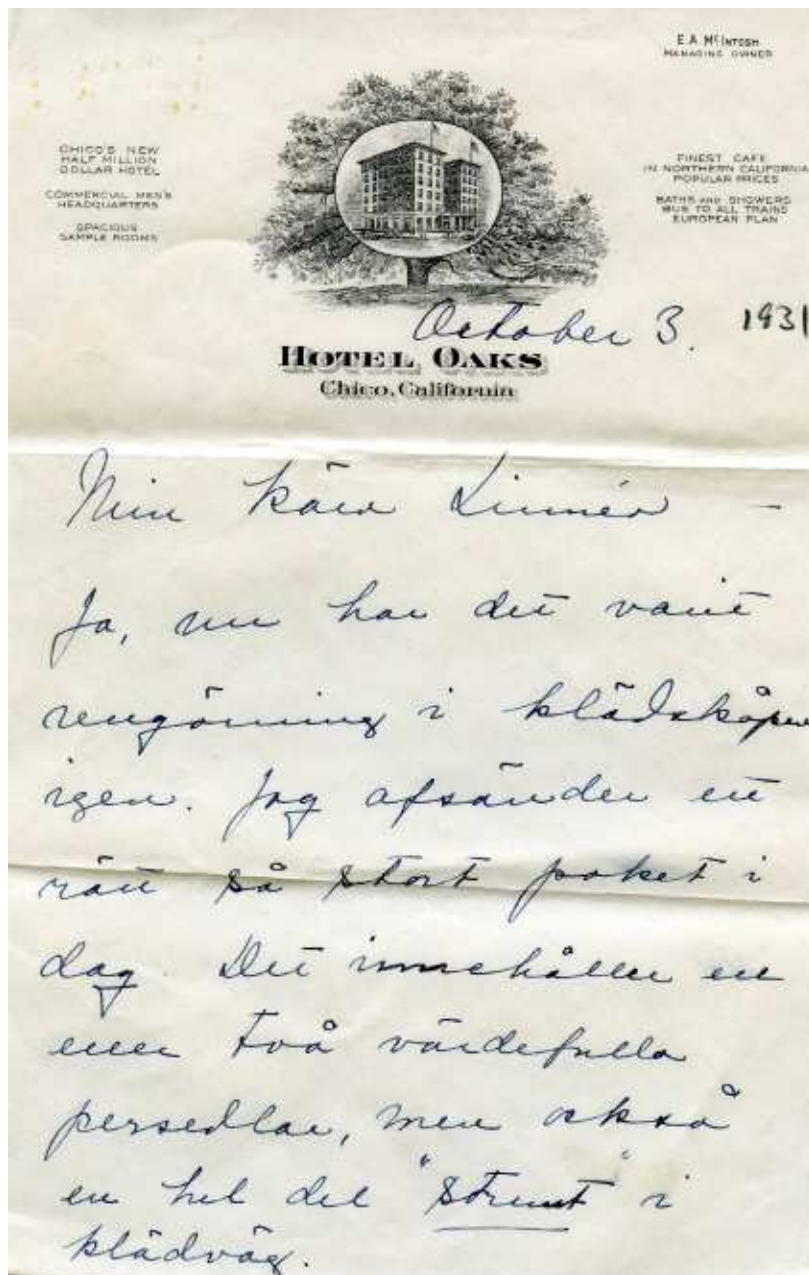 E.A. McINTOSH
MANAGING OWNER
CHICO'S NEW
HALF MILLION
DOLLAR HOTEL
COMMERCIAL MEN'S
HEADQUARTERS
SPACIOUS
SAMPLE ROOMS
FINEST CAFE
IN NORTHERN CALIFORNIA
POPULAR PRICES
BATHS AND SHOWERS
BUS TO ALL TRAINS
EUROPEAN PLAN
October 3. 1931
HOTEL OAKS
Chico, California
Min kära Linnéa —
Ja, nu har det varit
rengörning i klädskåpen
igen. Jag afsänder ett
rätt så stort paket i
dag. Det innehåller en
eller två värdefulla
persedlar, men också
en hel del "strunt" i
klädväg.